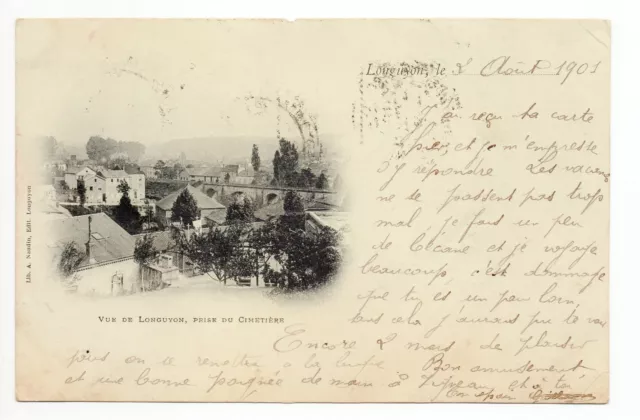 Longuyon, le 2 Août 1901
J'ai reçu ta carte
hier et je m'empresse
d'y répondre Les vacances
ne se passent pas trop
mal je fais un peu
de bécane et je voyage
beaucoup, c'est dommage
que tu es un peu loin,
sans cela j'aurais pu te voir
Encore 2 mois de plaisir
puis on se remettra à la
Bon amusement
et une bonne poignée de main à et à toi
Ton
VUE DE LONGUYON, PRISE DU CIMETIÈRE
Lib. A. Edit. Longuyon